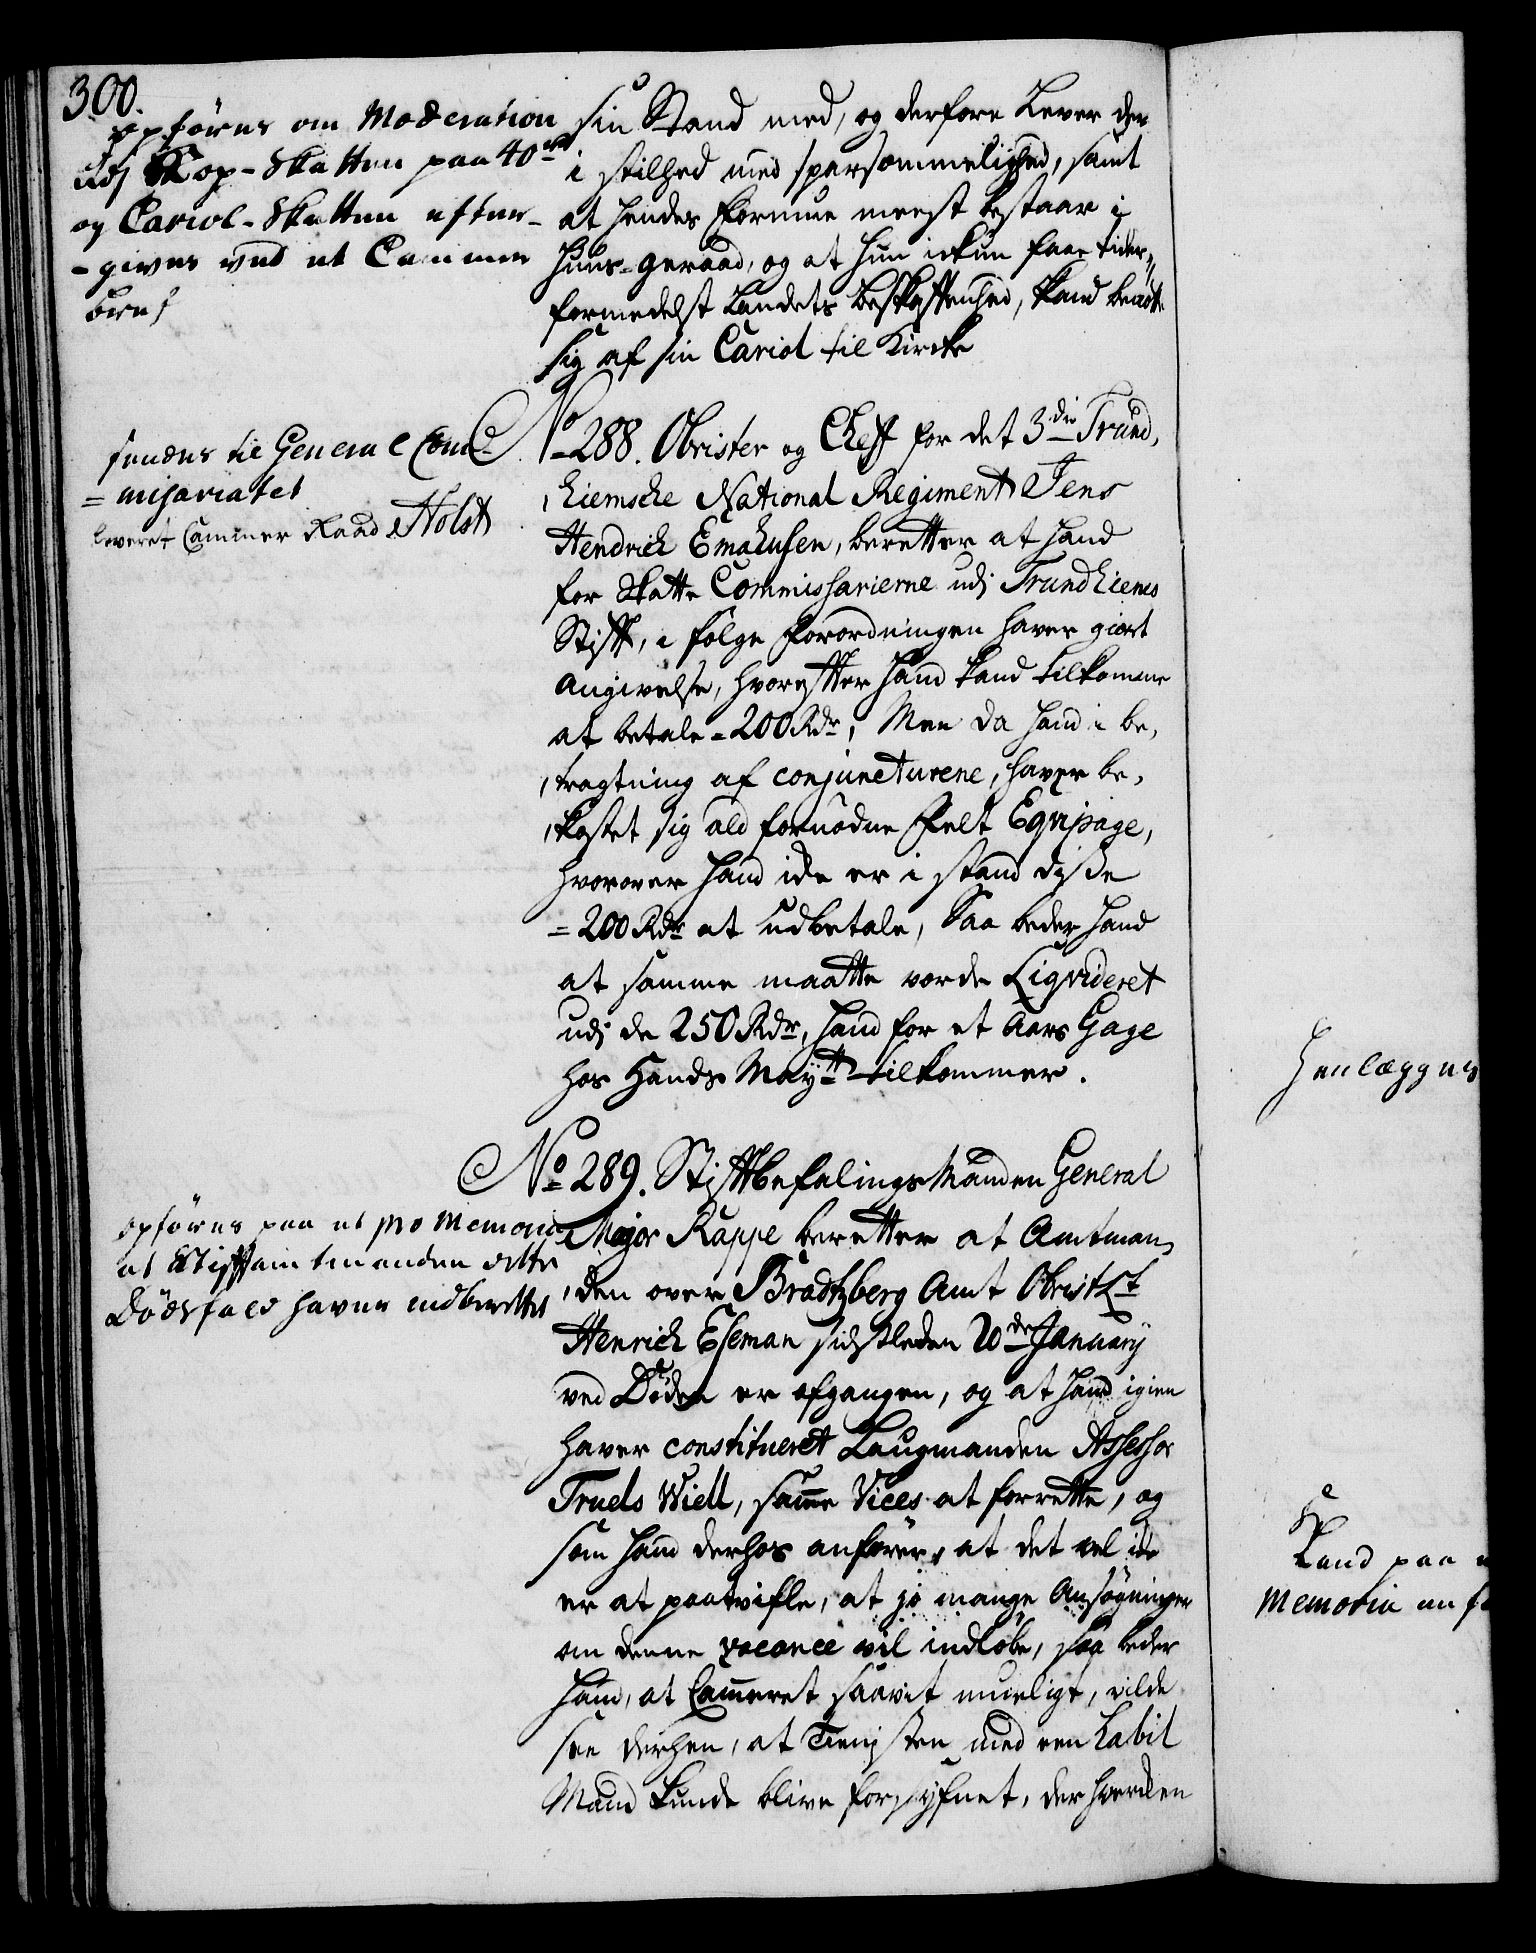 300.
opføres om Moderation
udj Kop-Skatten paa 40 rd
og Cariol-Skatten efter-
-gives ved et Cammer
breve
sin Stand med, og derfore Lever der
i stilhed med sparsommelighed, samt
at hendes Formue meest bestaar i
Huus-geraad, og at hun ickun faae tider
formedelst Landets Beskaffenhed, kand betiene
sig af sin Cariol til Kircke
sendes til General Com-
=misariatet
leveret Cammer Raad Holst
No 288. Obrister og Cheff for det 3die Trund,
,hiemske National Regiment Jens
Hendrick Emahusen, beretter at hand
for Skatte Commissarierne udj Trundhiems
Stift, i følge Forordningen haver giort
Angivelse, hvorefter hand kand tilkomme
at betale = 200 Rdr, Men da hand i be,
,tragtning af conjuncturene, haver be,
,kostet sig ald fornødne Felt Eqvipage,
hvorover hand icke er i stand disse
= 200 Rdr at udbetale, Saa beder hand
at samme maatte vorde Liqvideret
udj de 250 Rdr, hand for et Aars Gage
hos Hands Mayts tilkommer.
opføres paa et pro Memoria
at Stiftamtmanden dette
Dødsfald haver indberettet
No 289. Stiftbefalings Manden General
Major Rappe beretter at Amtman,
,den over Bradtzberg Amt ObristLt
Henrich Eseman sidstleden 20de January
ved Døden er afgangen, og at hand igien
haver constitueret Laugmanden Assessor
Truels Wiell, samme Vices at forrette, og
som hand derhos anfører, at det vel icke
er at paatvifle, at jo mange Ansøgninger
om denne vacance vil indløbe, saa beder
hand, at Cammeret saavit mueligt, vilde
see derhen, at Tienisten med een habil
Mand kunde blive forsynet, der hverken
Henlægges
Kand paa
Memoria